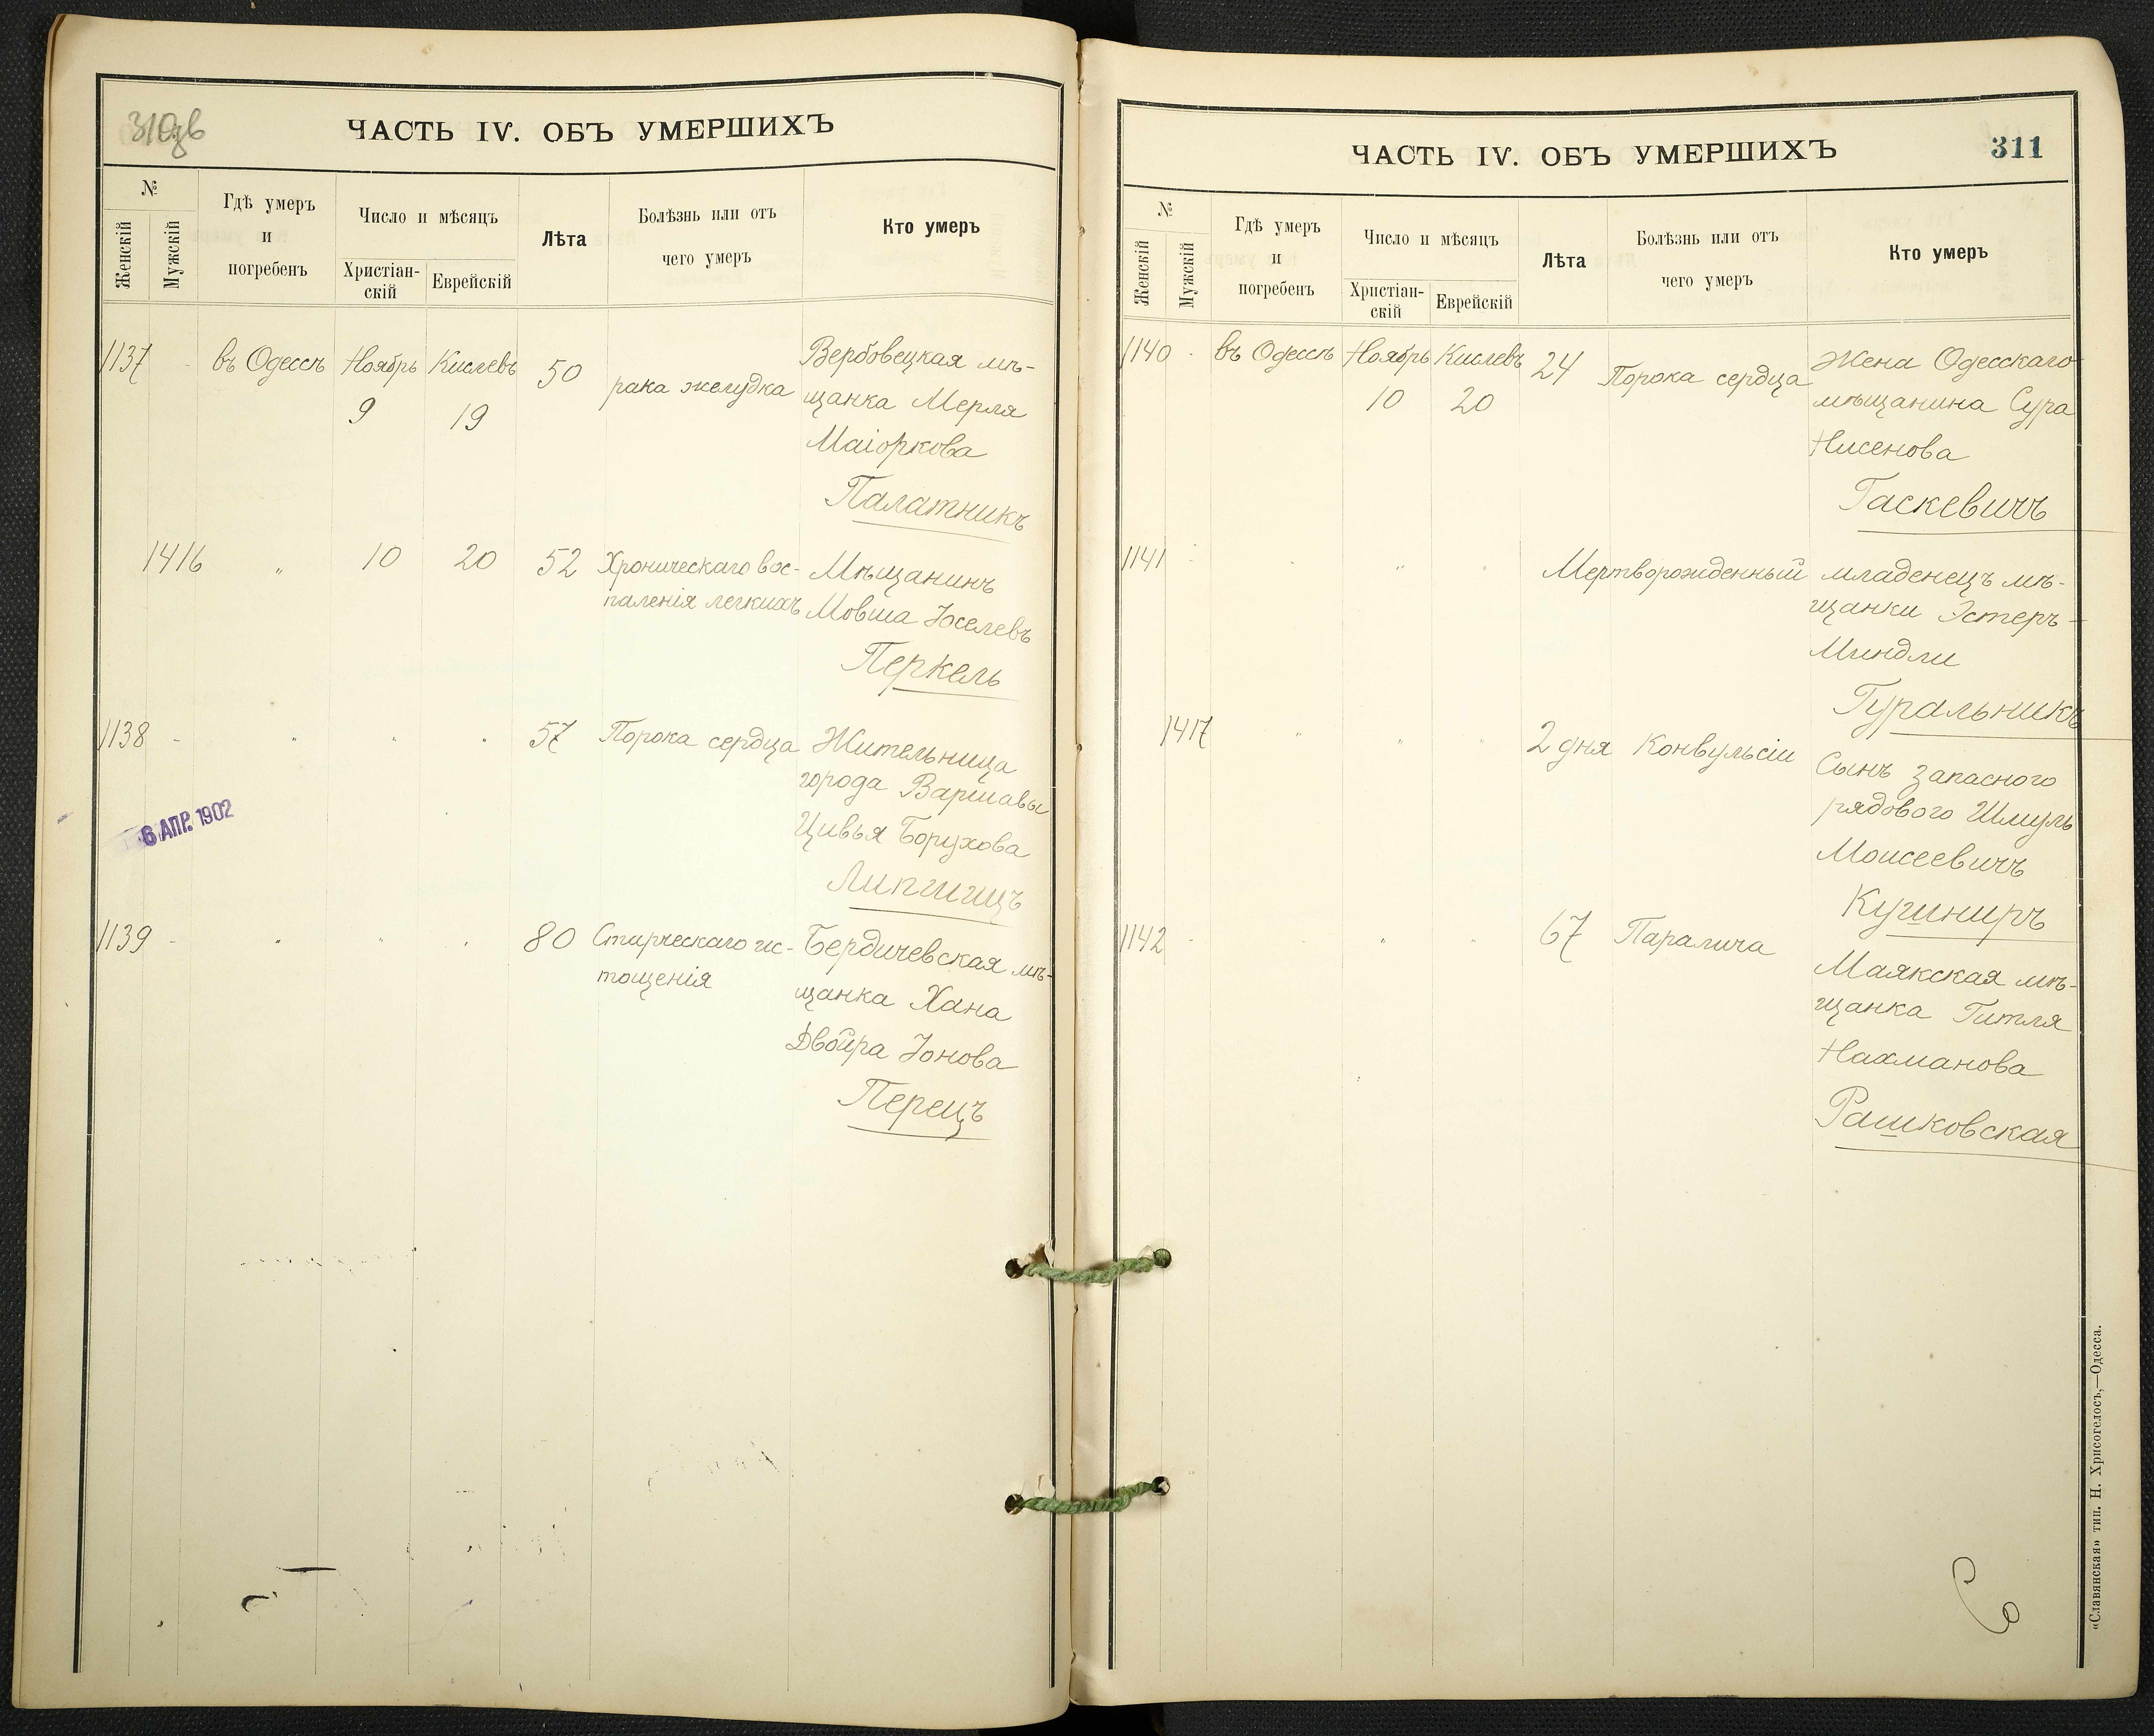 310зв
ЧАСТЬ IV. ОБЪ УМЕРШИХЪ
№
Женскій
Мужскій
Гдѣ умеръ
и
погребенъ
Число и мѣсяцъ
Христіан-
скій
Еврейскій
Лѣта
Болѣзнь или отъ
чего умеръ
Кто умеръ
1137 въ Одессѣ Ноябрь Кислевъ 50 рака желудка Вербовецкая мѣ-
9 19 щанка Мерля
Маіоркова
Палатникъ
1416 " 10 20 52 Хроническаго вос- Мѣщанинъ
паленія легкихъ Мовша Іоселевъ
Перкель
1138 - " " " 57 Порока сердца Жительница
города Варшавы
Цивья Борухова
Липшицъ
6 АПР. 1902
1139 - " " " 80 Старческаго ис- Бердичевская мѣ-
тощенія щанка Хана
Двойра Іонова
Перецъ
ЧАСТЬ IV. ОБЪ УМЕРШИХЪ
311
№
Женскій
Мужскій
Гдѣ умеръ
и
погребенъ
Число и мѣсяцъ
Христіан-
скій
Еврейскій
Лѣта
Болѣзнь или отъ
чего умеръ
Кто умеръ
1140 въ Одессѣ Ноябрь Кислевъ 24 Порока сердца Жена Одесскаго
10 20 мѣщанина Сура
Нисенова
Гаскевичъ
1141 " " " Мертворожденный младенецъ мѣ-
щанки Эстеръ-
Миндли
Гуральникъ
1417 " " " 2 дня Конвульсіи Сынъ запасного
рядового Шмуль
Моисеевичъ
Кушниръ
1142 - " " 67 Паралича Маякская мѣ-
щанка Гитля
Нахманова
Рашковская
«Славянская» тип. Н. Хрисогелосъ,—Одесса.